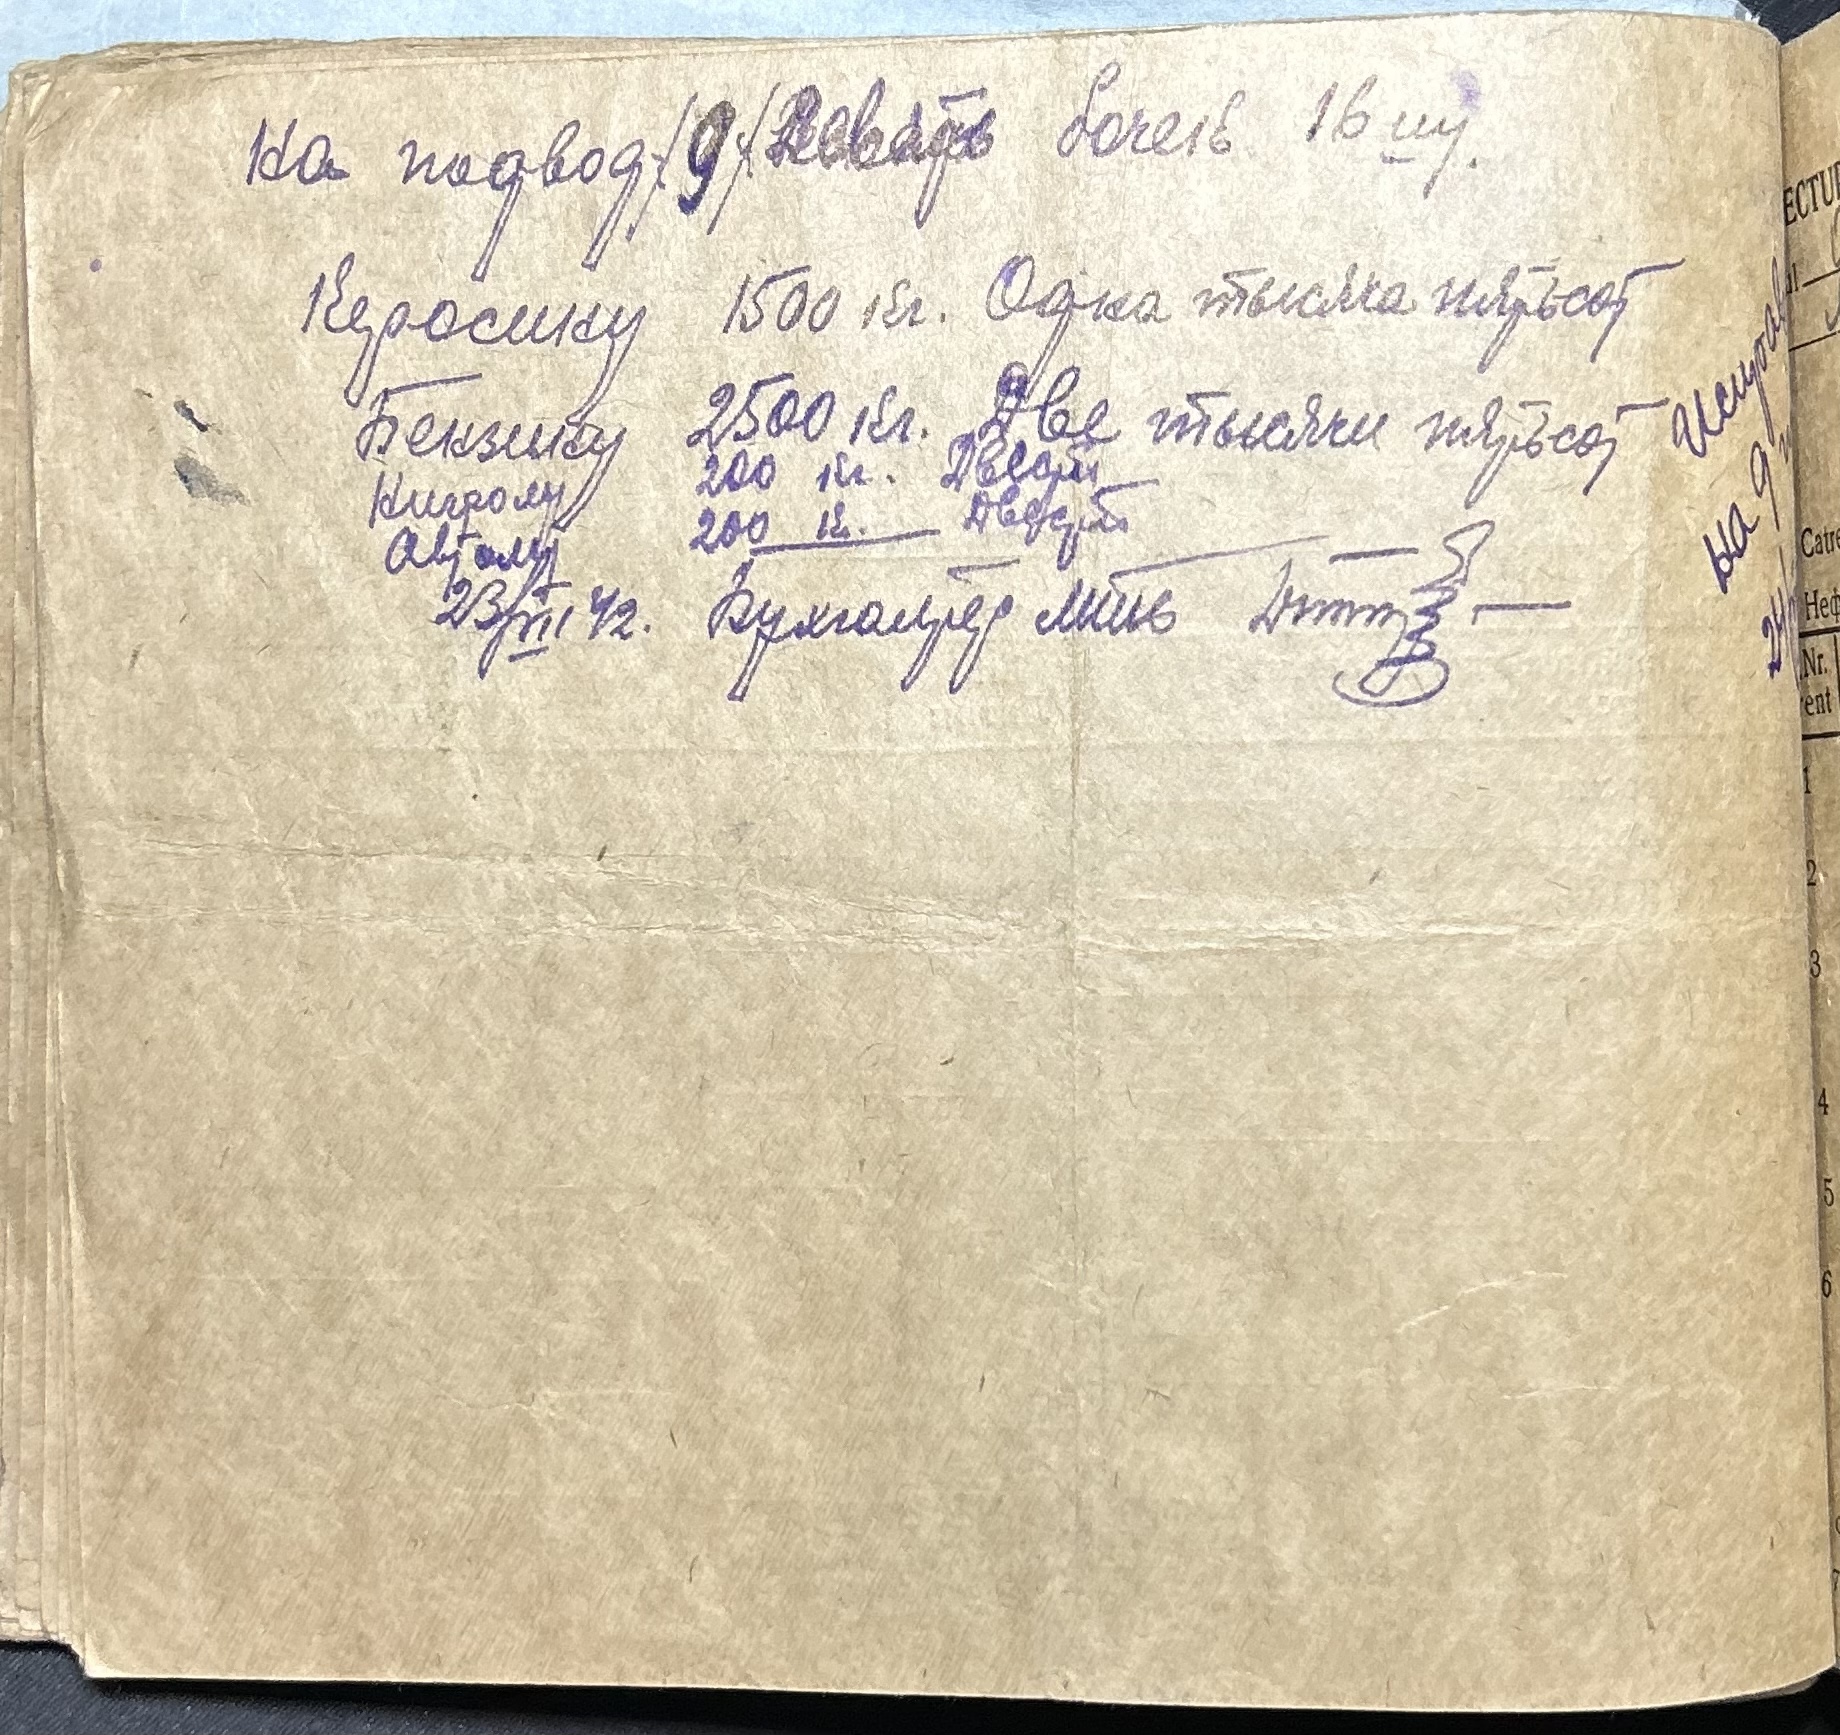 на подвод. /9/ Девять бочек 16 шу.
Керосину 1500 кг. Одна тысяча пятьсот
Бензину 2500 кг. Две тысячи пятьсот
Нигролу 200 кг. Двести
Автолу 200 кг. Двести
23/VII 42. Бухгалтер
на 9
ECTUR
Catre
Неф
Nr.
rent
1
2
3
4
5
6